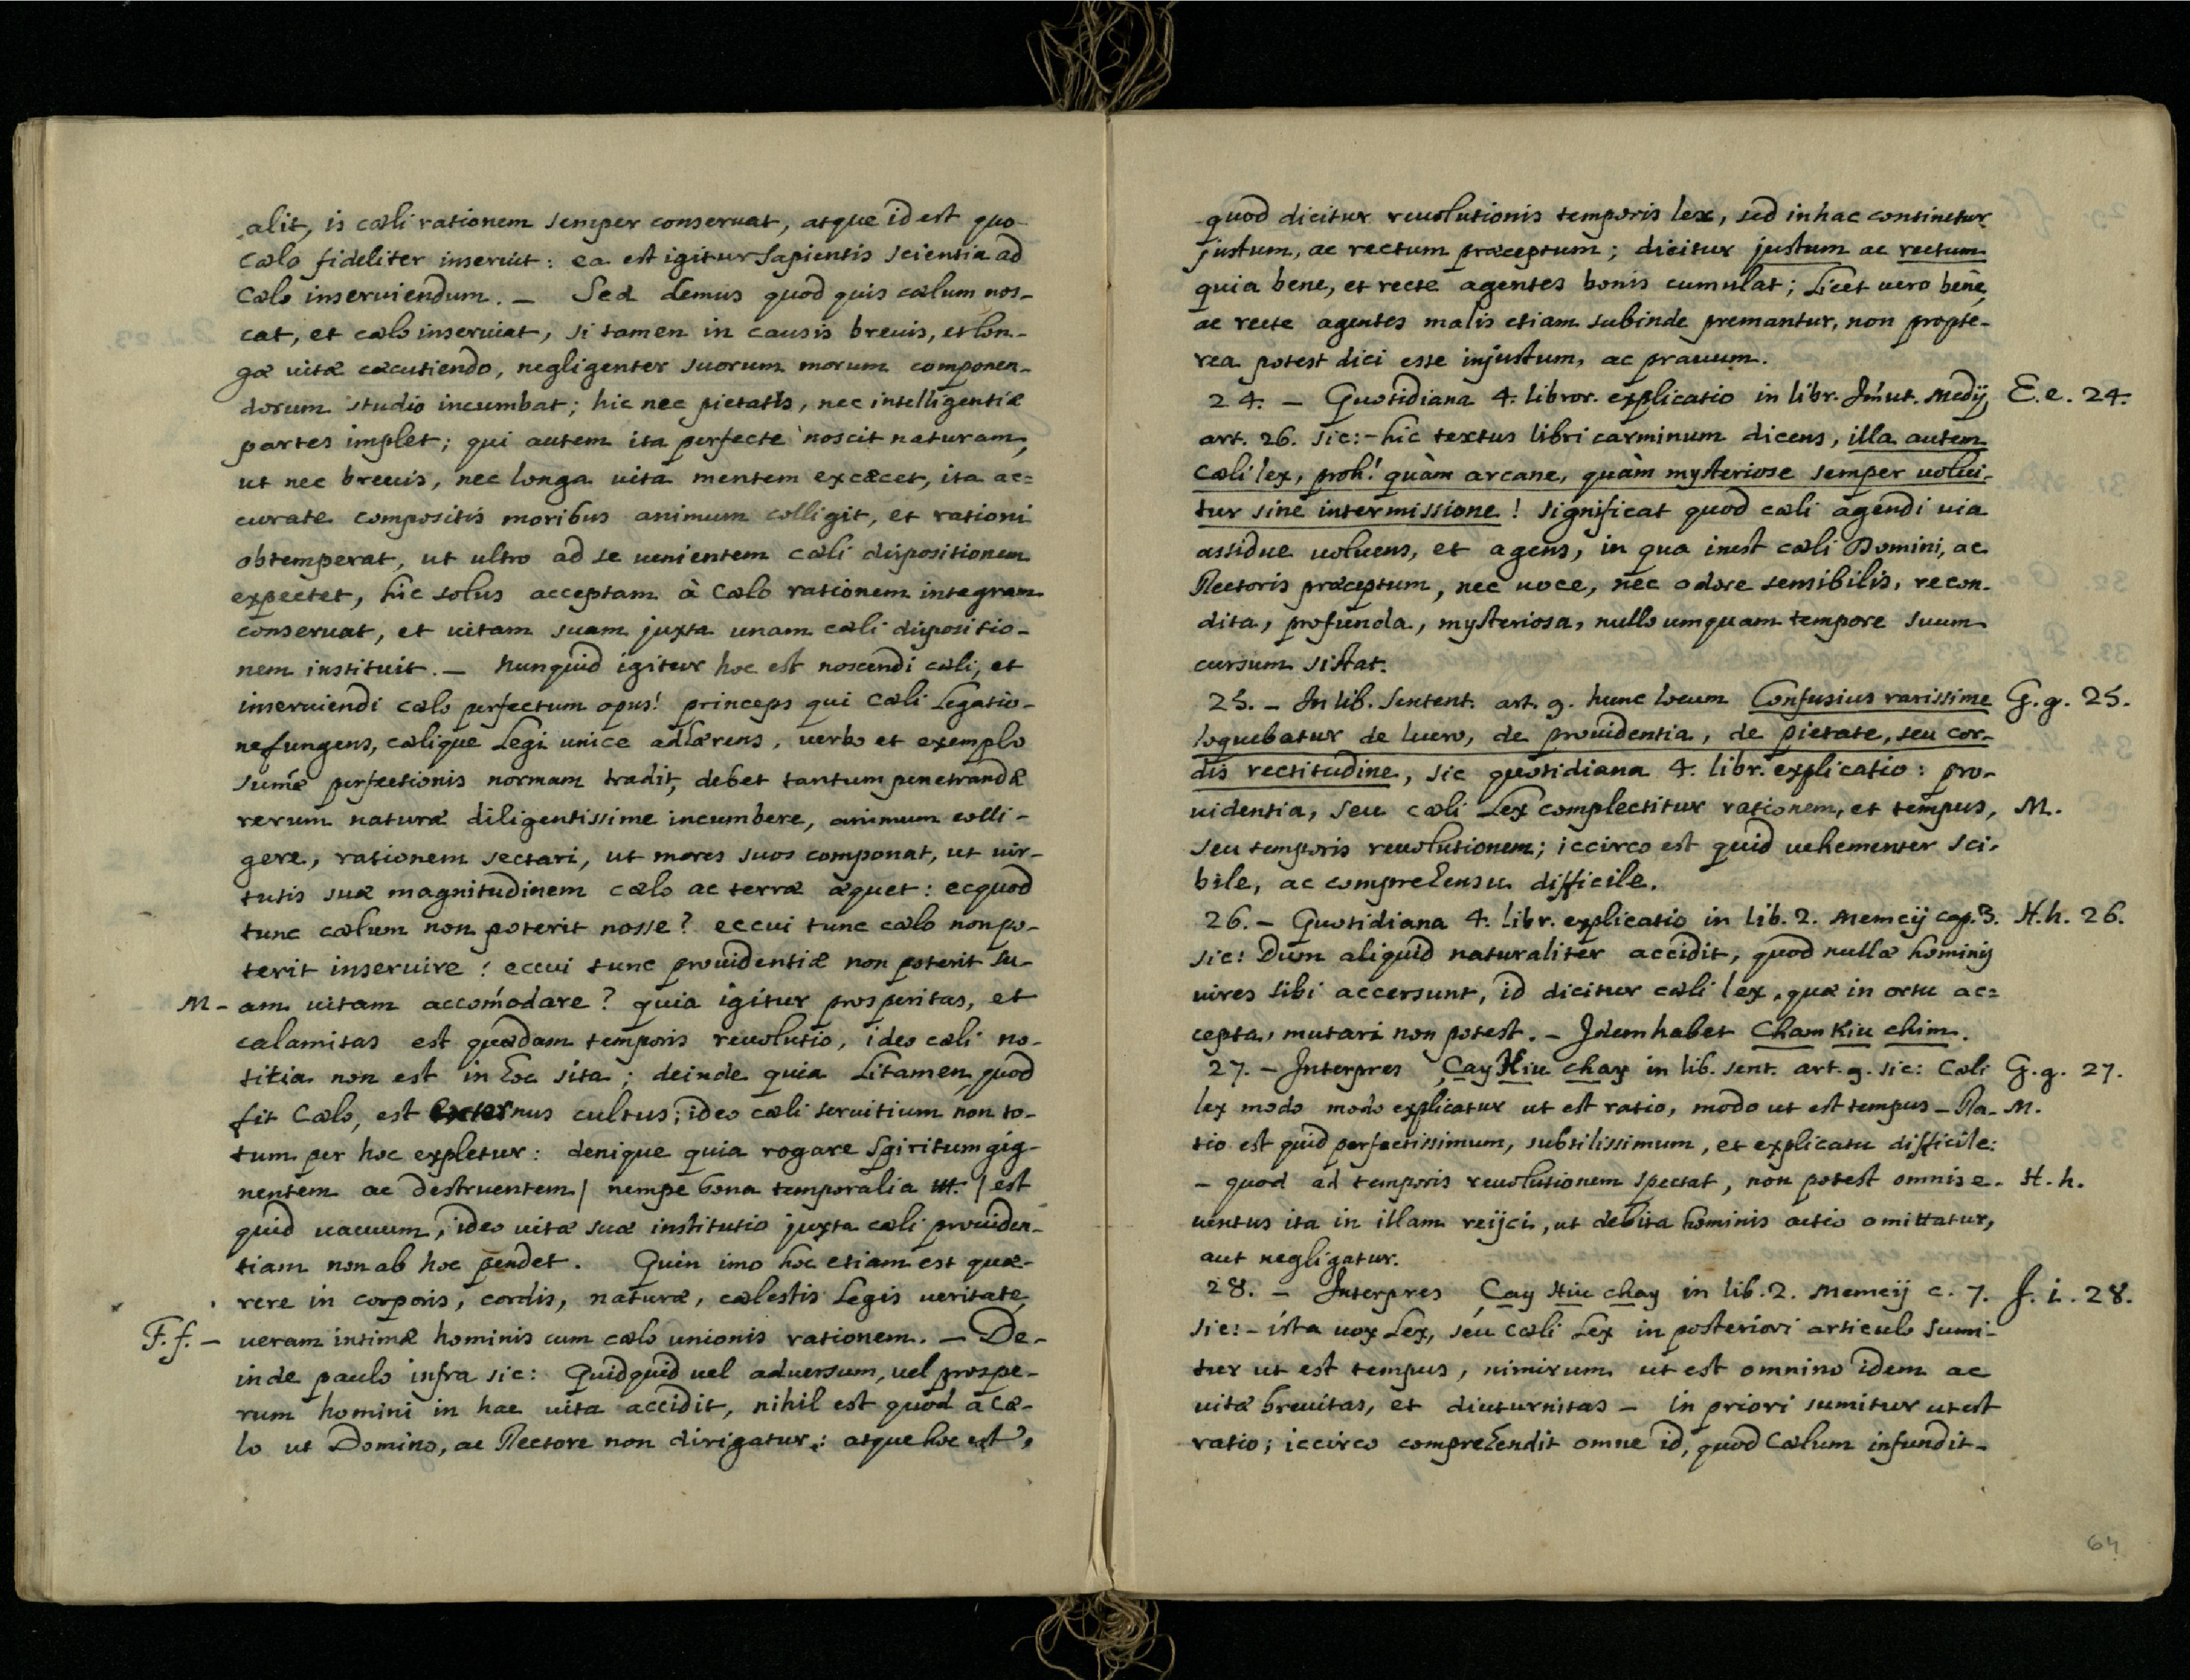 alit, is cæli rationem semper conseruat, atque id est quo
Cælo fideliter inseruit: ea est igitur Sapientis scientia ad
Cælo inseruiendum. – Sed demus quod quis cælum nos-
cat, et cælo inseruiat, si tamen in causis breuis, et lon-
gæ uitæ cæcutiendo, negligenter suorum morum componen-
dorum studio incumbat; hic nec pietatis, nec intelligentiæ
partes implet; qui autem ita perfecte noscit naturam,
ut nec breuis, nec longa uita mentem excæcet, ita ac=
curate compositis moribus animum colligit, et rationi
obtemperat, ut ultro ad se uenientem cæli dispositionem
expectet, hic solus acceptam à Cælo rationem integram
conseruat, et uitam suam juxta unam cæli dispositio-
nem instituit. – Nunquid igitur hoc est noscendi cæli, et
inseruiendi cælo perfectum opus! princeps qui Cæli Legatio-
ne fungens, cælique Legi unice adhærens, uerbo et exemplo
sum̃æ perfectionis normam tradit, debet tantum penetrandæ
rerum naturæ diligentissime incumbere, animum colli-
gere, rationem sectari, ut mores suos componat, ut uir-
tutis suæ magnitudinem cælo ac terræ æquet: ecquod
tunc cælum non poterit nosse? eccui tunc cælo non po-
terit inseruire? eccui tunc prouidentiæ non poterit su-
M - am uitam accom̃odare? quia igitur prosperitas, et
calamitas est quædam temporis reuolutio, ideo cæli no-
titia non est in hoc sita; deinde quia Litamen, quod
fit Cælo, est externus cultus; ideo cæli seruitium non to-
tum per hoc expletur: denique quia rogare Spiritum gig-
nentem ac destruentem / nempe bona temporalia ttt. / est
quid uacuum, ideo uitæ suæ institutio juxta cæli prouiden-
tiam non ab hoc pendet. Quin imo hoc etiam est quæ-
rere in corporis, cordis, naturæ, cælestis Legis ueritate,
F. f. – ueram intimæ hominis cum cælo unionis rationem. – De-
inde paulo infra sic: Quidquid uel aduersum, uel prospe-
rum homini in hac uita accidit, nihil est quod a Cæ-
lo ut Domino, ac Rectore non dirigatur: atque hoc est,
quod dicitur reuolutionis temporis lex, sed in hac continetur
justum, ac rectum præceptum; dicitur justum ac rectum
quia bene, et recte agentes bonis cumulat; Licet uero bene,
ac recte agentes malis etiam subinde premantur, non propte-
rea potest dici esse injustum, ac prauum.
24. – Quotidiana 4. libror. explicatio in libr. Im̃ut. Medij, E. e. 24.
art. 26. sic: – hic textus libri carminum dicens, illa autem
Cæli lex, proh! quàm arcane, quàm mysteriose semper uolui-
tur sine intermissione! significat quod cæli agendi uia
assidue uoluens, et agens, in qua inest cæli Domini, ac
Rectoris præceptum, nec uoce, nec odore sensibilis, recon-
dita, profunda, mysteriosa, nullo umquam tempore suum
cursum sistat.
25. – In lib. Sentent. art. 9. hunc locum Confusius rarissime G. g. 25.
loquebatur de lucro, de prouidentia, de pietate, seu cor-
dis rectitudine, sic quotidiana 4. libr. explicatio: pro-
uidentia, seu cæli Lex complectitur rationem, et tempus, M.
seu temporis reuolutionem; iccirco est quid uehementer sci-
bile, ac comprehensu difficile.
26. – Quotidiana 4. libr. explicatio in lib. 2. Memcij cap. 3. H. h. 26.
sic: Dum aliquid naturaliter accidit, quod nullæ hominis
uires sibi accersunt, id dicitur cæli lex, quæ in ortu ac=
cepta, mutari non potest. – Idem habet Cham Kiu chim.
27. – Interpres Cay Hiu chay in lib. sent. art. 9. sic: Cæli G. g. 27.
lex modo modo explicatur ut est ratio, modo ut est tempus – Ra- M.
tio est quid perfectissimum, subtilissimum, et explicatu difficile:
– quod ad temporis reuolutionem spectat, non potest omnis e- H. h.
uentus ita in illam reijci, ut debita hominis actio omittatur,
aut negligatur.
28. – Interpres Cay Hiu chay in lib. 2. Memcij c. 7. J. i. 28.
sic: – ista uox Lex, seu Cæli Lex in posteriori articulo sumi-
tur ut est tempus, nimirum ut est omnino idem ac
uitæ breuitas, et diuturnitas – in priori sumitur ut est
ratio; iccirco comprehendit omne id, quod Cælum infundit-
64